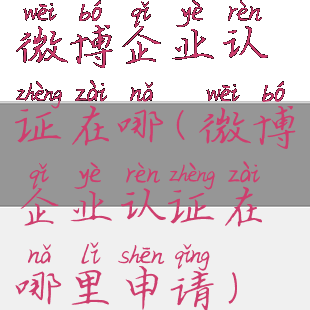 wēi bó qǐ yè rèn
微博企业认
zhèng zài nǎ wēi bó
证在哪(微博
qǐ yè rèn zhèng zài
企业认证在
nǎ lǐ shēn qǐng
哪里申请)